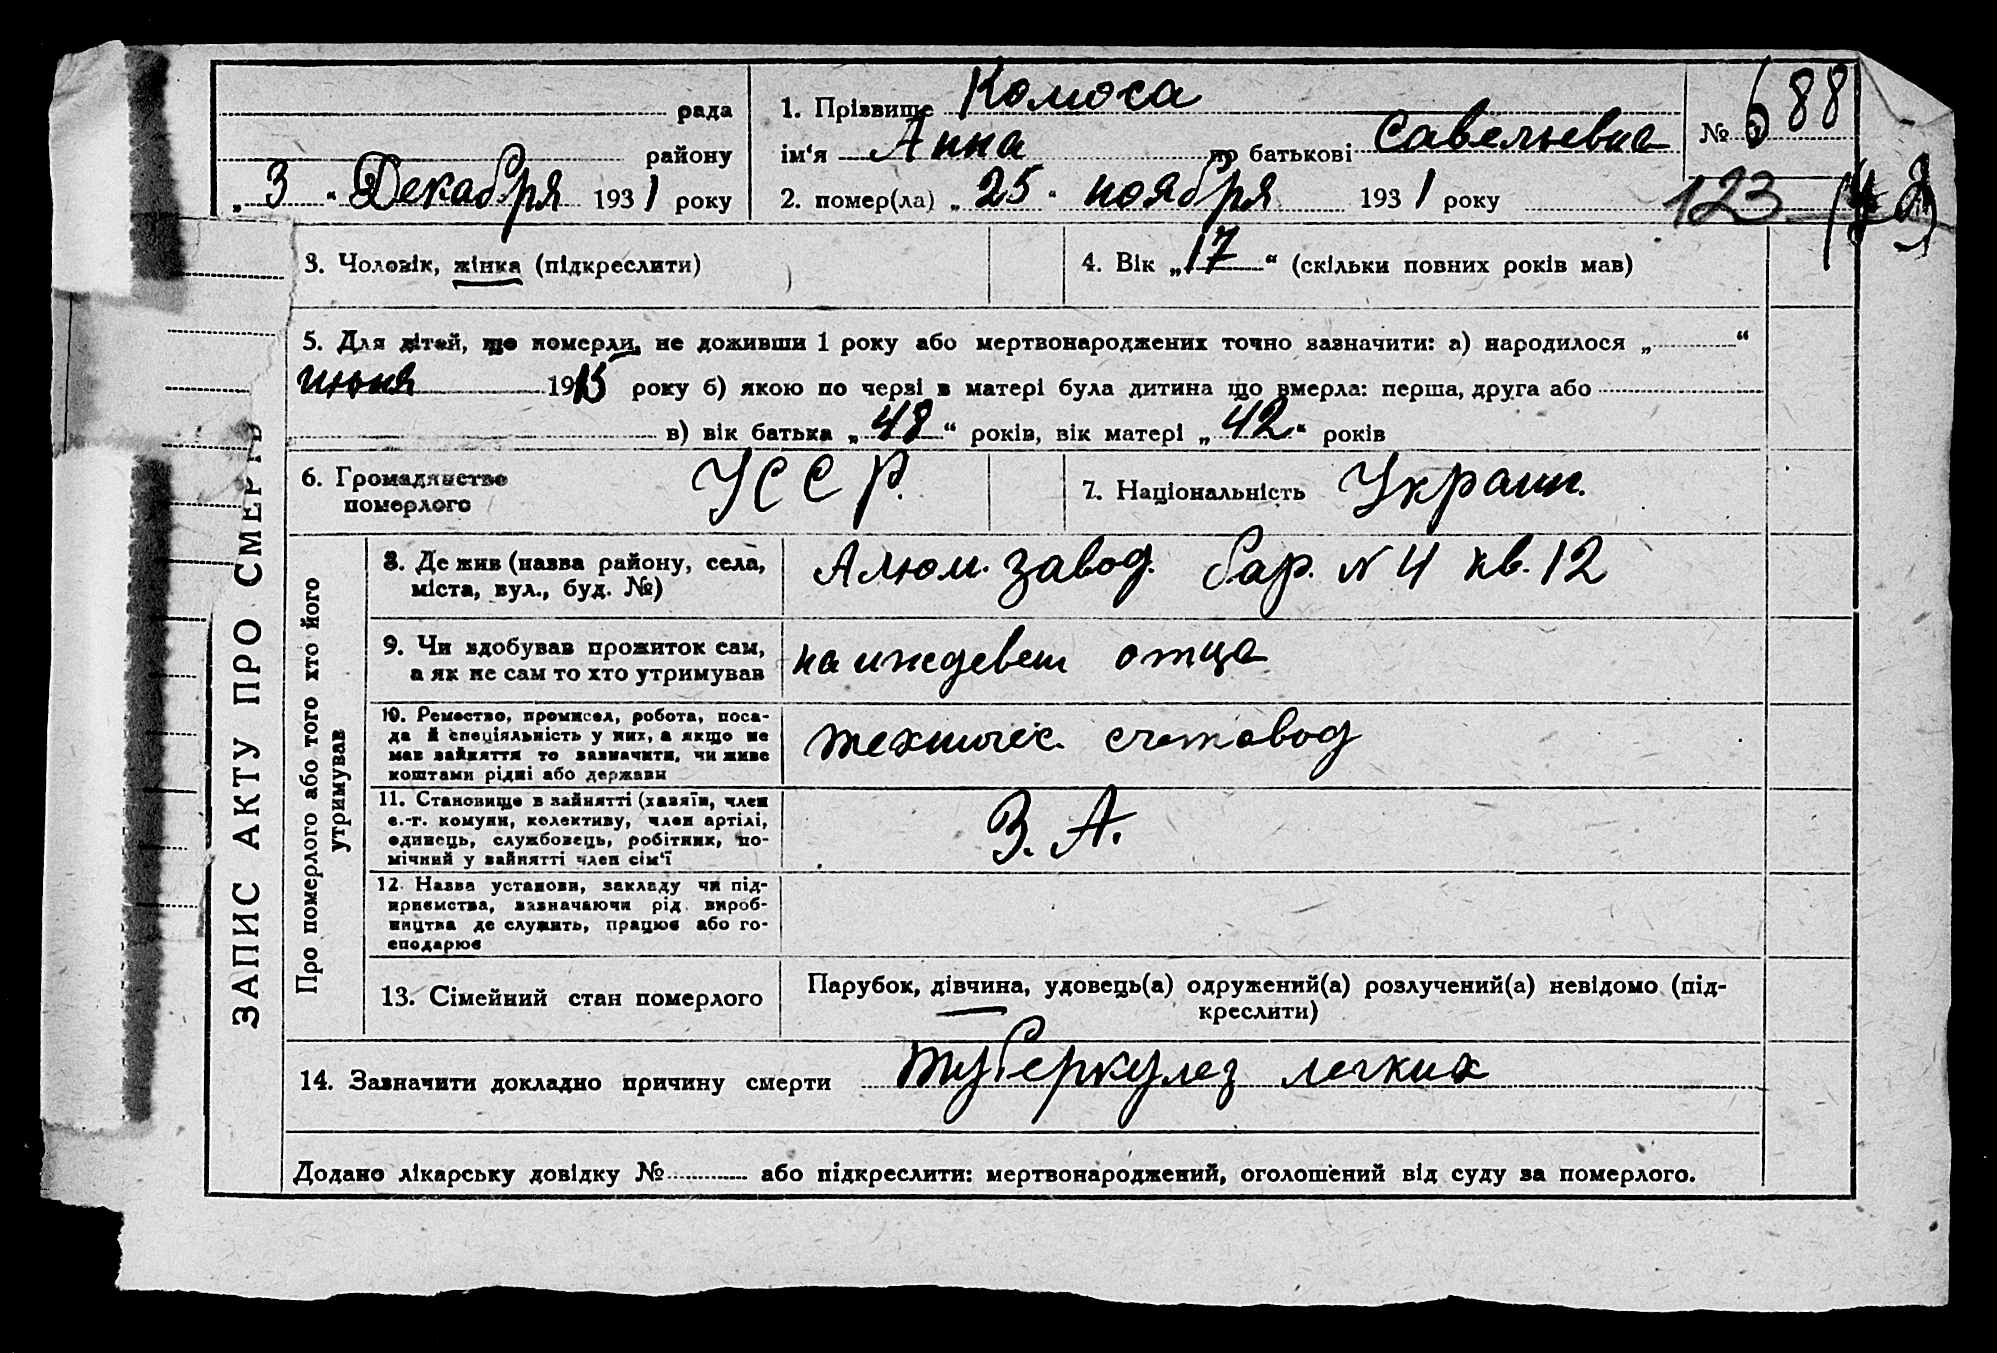 ЗАПИС АКТУ ПРО СМЕРТЬ
рада
району
„ 3 “ Декабря 1931 року
1. Прізвище Комоса
ім'я Анна по батькові Савельевна
2. помер(ла) „ 25 “ ноября 1931 року
№ 688
123
3. Чоловік, жінка (підкреслити)
4. Вік „ 17 “ (скільки повних років мав)
5. Для дітей, що померли, не доживши 1 року або мертвонароджених точно зазначити: а) народилося „ “
июня 1915 року б) якою по черзі в матері була дитина що вмерла: перша, друга або
в) вік батька „ 48 “ років, вік матері „ 42 “ років
6. Громадянство
померлого
УССР.
7. Національність Украин.
Про померлого або того хто його
утримував
8. Де жив (назва району, села,
міста, вул., буд. №)
Алюм. завод. бар. N 4 кв. 12
9. Чи здобував прожиток сам,
а як не сам то хто утримував
на иждевен отца
10. Ремество, промисел, робота, поса-
да й спеціяльність у них, а якщо не
мав зайняття то зазначити, чи живе
коштами рідні або держави
техничес. счетовод
11. Становище в зайнятті (хазяїн, член
с.-г. комуни, колективу, член артілі,
одинець, службовець, робітник, по-
мічний у зайнятті член сім'ї
З. А.
12. Назва установи, закладу чи під-
приємства, зазначаючи рід вироб-
ництва де служить, працює або го-
сподарює
13. Сімейний стан померлого
Парубок, дівчина, удовець(а) одружений(а) розлучений(а) невідомо (під-
креслити)
14. Зазначити докладно причину смерти туберкулез легких
Додано лікарську довідку № або підкреслити: мертвонароджений, оголошений від суду за померлого.